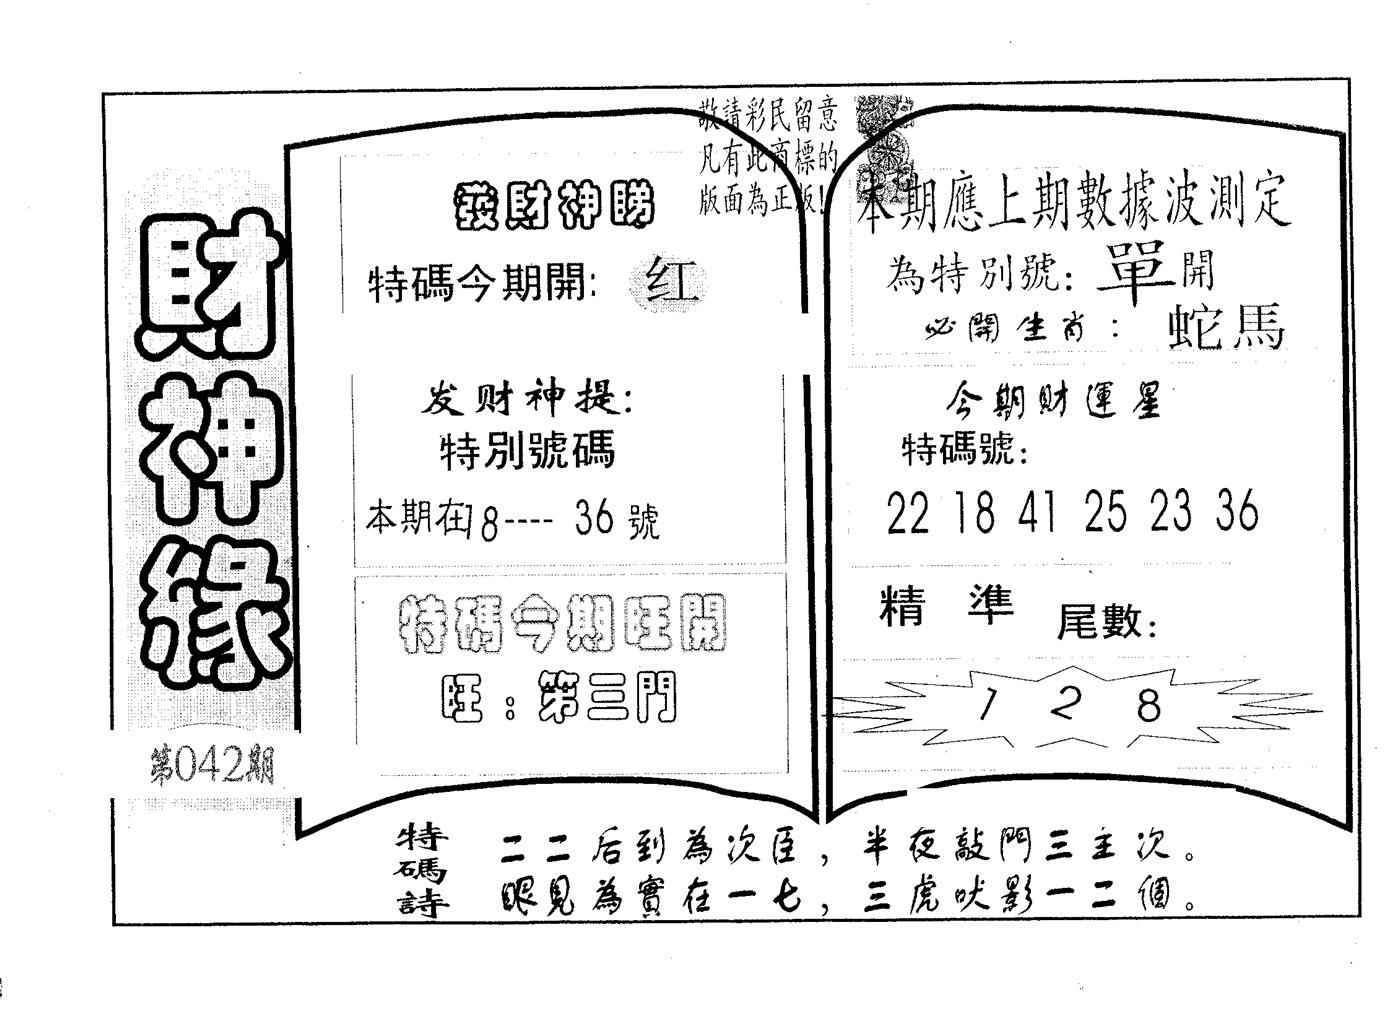 財神緣
第042期
敬請彩民留意
凡有此商標的
版面為正版!
發財神睇
特碼今期開: 红
发财神提:
特別號碼
本期在18---- 36 號
特碼今期旺開
旺: 第三門
本期應上期數據波測定
為特別號: 單開
必開生肖: 蛇馬
今期財運星
特碼號:
22 18 41 25 23 36
精 準 尾數:
1 2 8
特碼詩
二二后到為次臣, 半夜敲門三主次。
眼見為實在一七, 三虎吠影一二個。